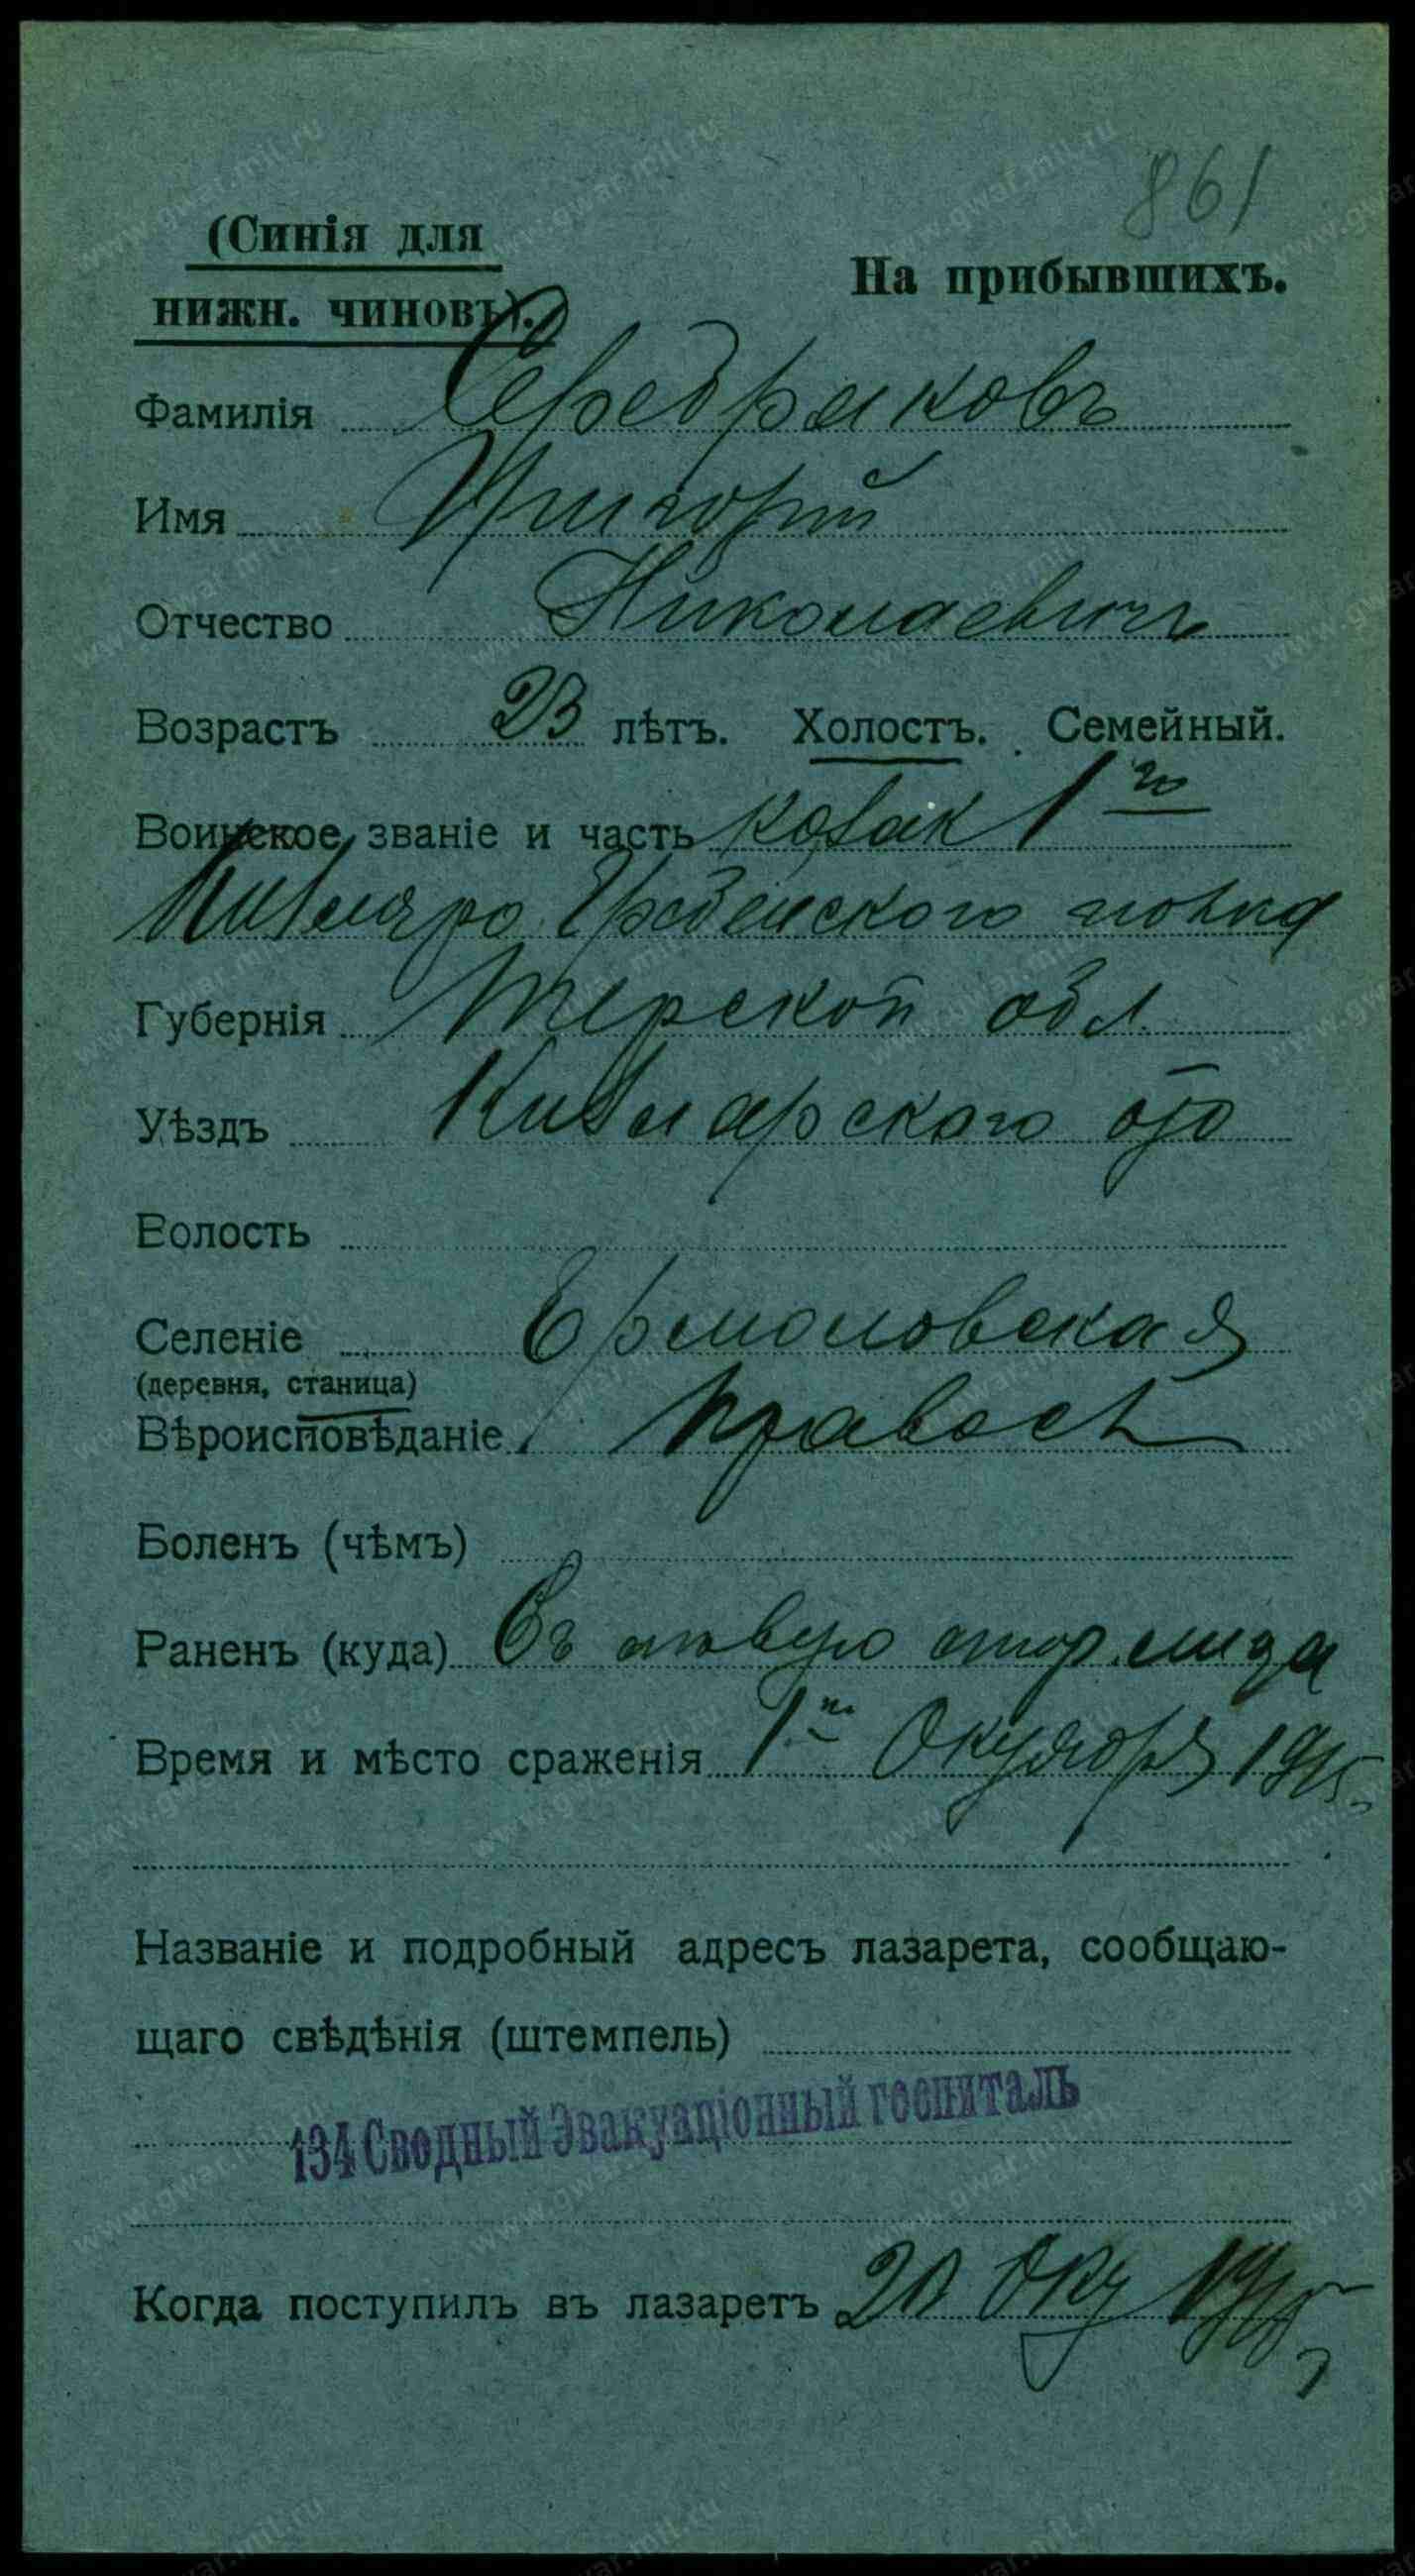 861
(Синія для
нижн. чиновъ).
На прибывшихъ.
Фамилія Серебряковъ
Имя Григорій
Отчество Николаевичъ
Возрастъ 23 лѣтъ. Холостъ. Семейный.
Воинское званіе и часть козак 1го
Кизляро Гребенского полка
Губернія Терской обл.
Уѣздъ Кизлярскаго отд
Волость
Селеніе Ермоловская
(деревня, станица)
Вѣроисповѣданіе правосл
Боленъ (чѣмъ)
Раненъ (куда) Въ лѣвую стор. лица
Время и мѣсто сраженія 1го Октября 1915
Названіе и подробный адресъ лазарета, сообщаю-
щаго свѣдѣнія (штемпель)
134 Сводный Эвакуаціонный госпиталь
Когда поступилъ въ лазаретъ 20 Окт 1915
www.gwar.mil.ru